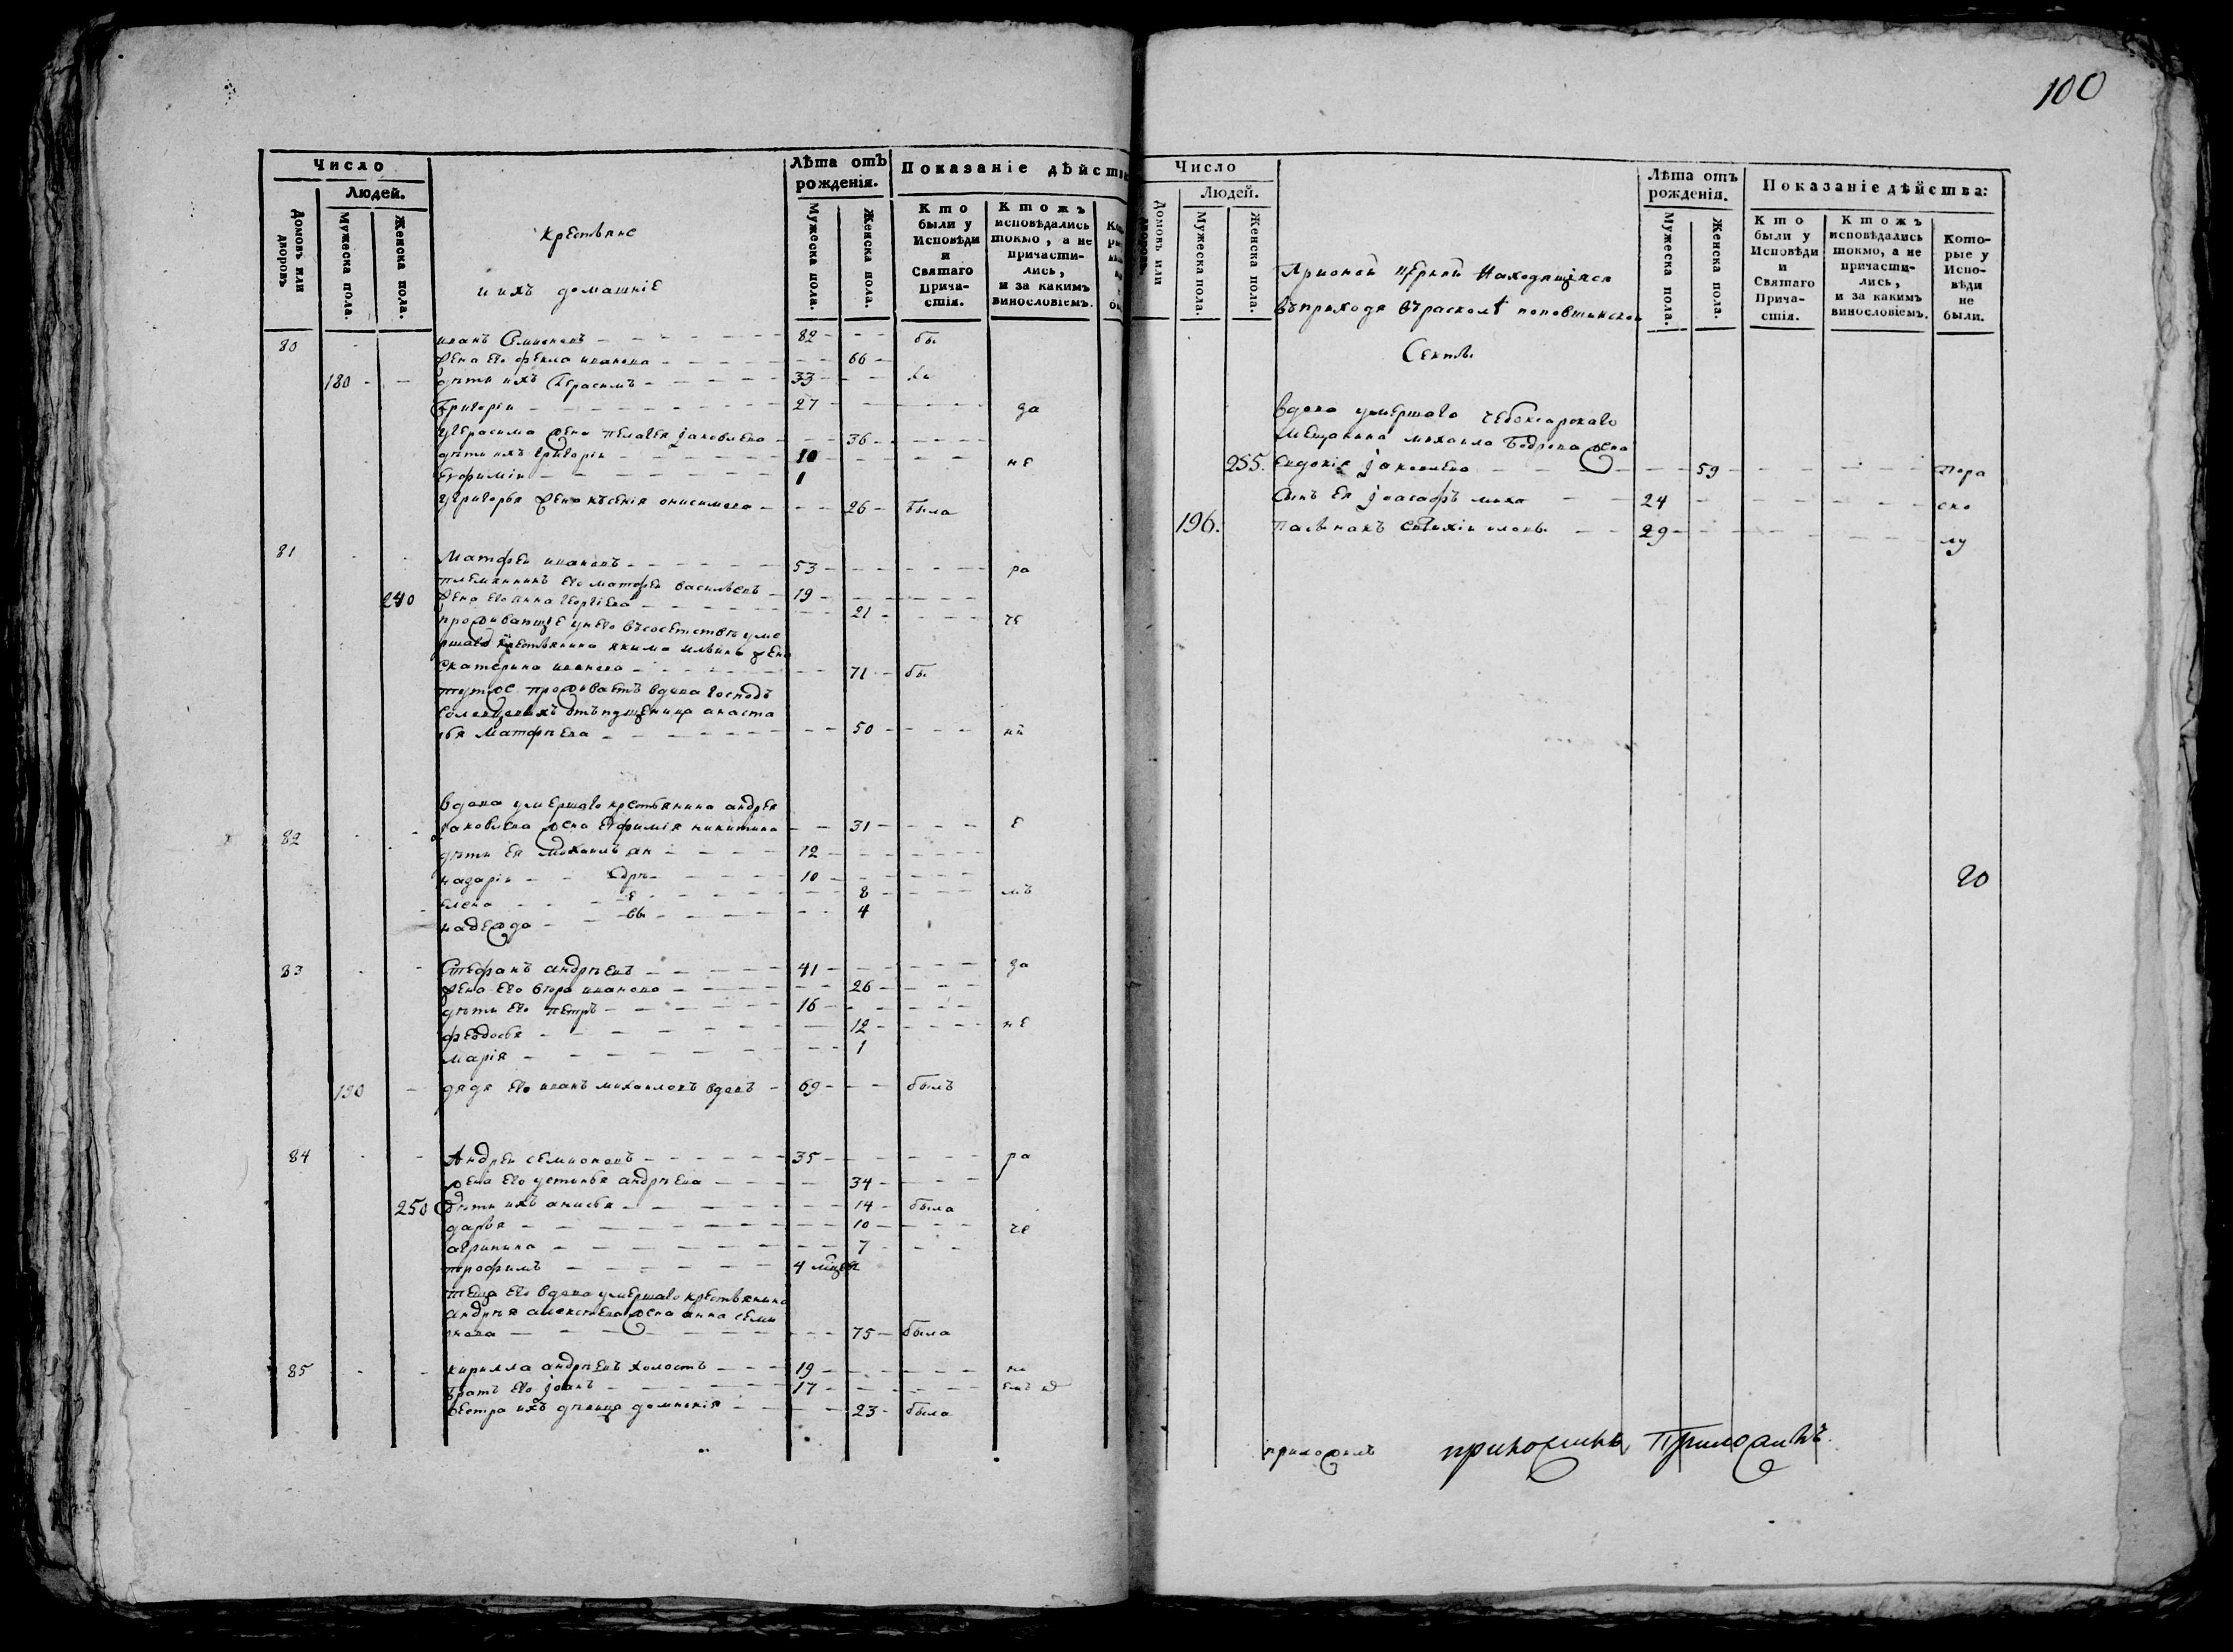 100
Число
Людей.
Домовъ или дворовъ
Мужеска пола.
Женска пола.
Крестьяне
и ихъ домашніе
Лѣта отъ рожденія.
Мужеска пола.
Женска пола.
Показаніе дѣйств
Кто были у Исповѣди и Святаго Прича-стія.
Ктожъ исповѣдались токмо, а не причасти-лись, и за какимъ винословіемъ.
80 иванъ Семионовъ 82 бы
жена его фекла иванова 66
180 дѣти ихъ Герасимъ 33 ли
Григоріи 27 за
у герасима жена пелагея Јаковлева 36
дѣти ихъ григоріи 10 не
Евфиміи 1
у григорья жена ксенія онисимова 26 была
81 Матфеи ивановъ 53 ра
племянникъ его матфеи васильевъ 19
240 жена его анна георгіева 21 че
проживающе у него въ соседстве уме
ршаго крестьянина якима жена
Екатерина иванова 71 бы
тутже проживаетъ вдова господъ
отъпущеница анаста
сья Матфѣева 50 ни
вдова умершаго крестьянина андрея
82 Јаковлева жена Евфимія никитина 31 е
дѣти ея михаилъ ан 12
назаріи дрѣ 10
елена е 8 мъ
надежда вы 4
83 Стефанъ андрѣевъ 41 за
жена его вѣра иванова 26
дѣти его петръ 16
феодосья 12 не
марія 1
190 дядя его иванъ михаиловъ вдовъ 69 былъ
84 Андреи семионовъ 35 ра
жена его устинья андрѣева 34
250 дѣти ихъ анисья 14 была
дарья 10 че
агрипина 7
трофимъ 4 мѣсецы
теща его вдова умершаго крестьянина
андрѣя алексѣева жена анна семи
онова 75 была
85 кирилла андрѣевъ холостъ 19 ни
братъ его Јоанъ 17
сестра ихъ дѣвица домникія 23 была
Число
Людей.
Домовъ или дворовъ.
Мужеска пола.
Женска пола.
При оной церкви Находящіяся
въ приходѣ въ расколѣ поповщинской
Сектѣ
Лѣта отъ рожденія.
Мужеска пола.
Женска пола.
Показаніе дѣйства:
Кто были у Исповѣди и Святаго Прича-стія.
Ктожъ исповѣдались токмо, а не причасти-лись, и за какимъ винословіемъ.
Кото-рые у Испо-вѣди не были.
вдова умершаго чебоксарскаго
мещанина михаила жена
255. Евдокія Јаковлева 59 по ра
сынъ ея Јоасафъ миха 24 ско
196. пасынокъ иловъ 29 лу
20
прихожемъ